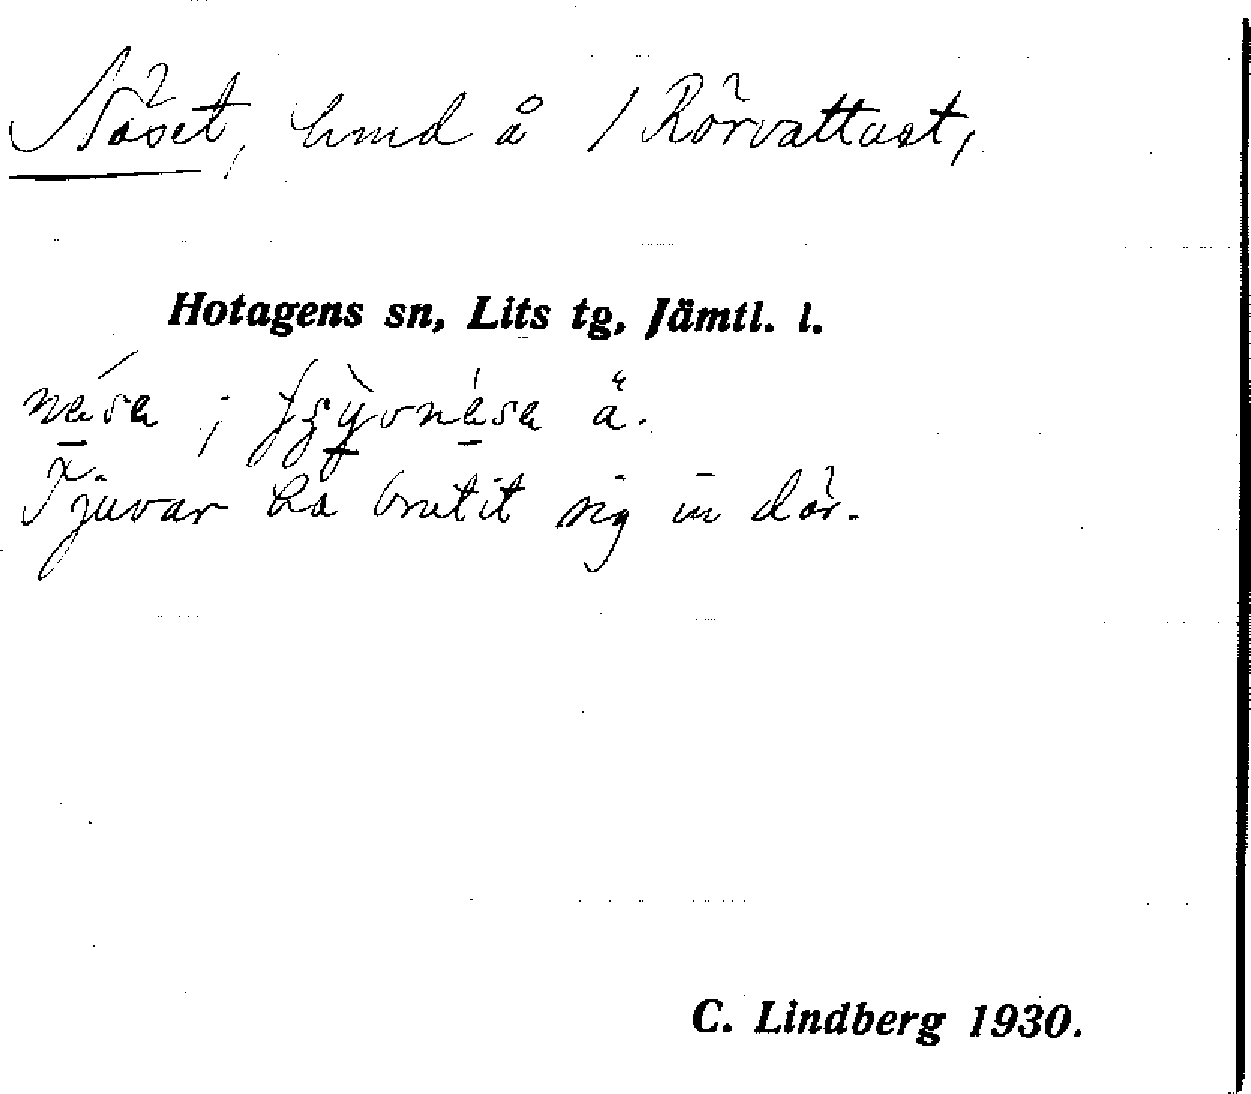 Näset, hmd å / Rörvattust,
Hotagens sn, Lits tg, Jämtl. l.
näsa ; å.
Tjuvar ha brutit sig in där.
C. Lindberg 1930.